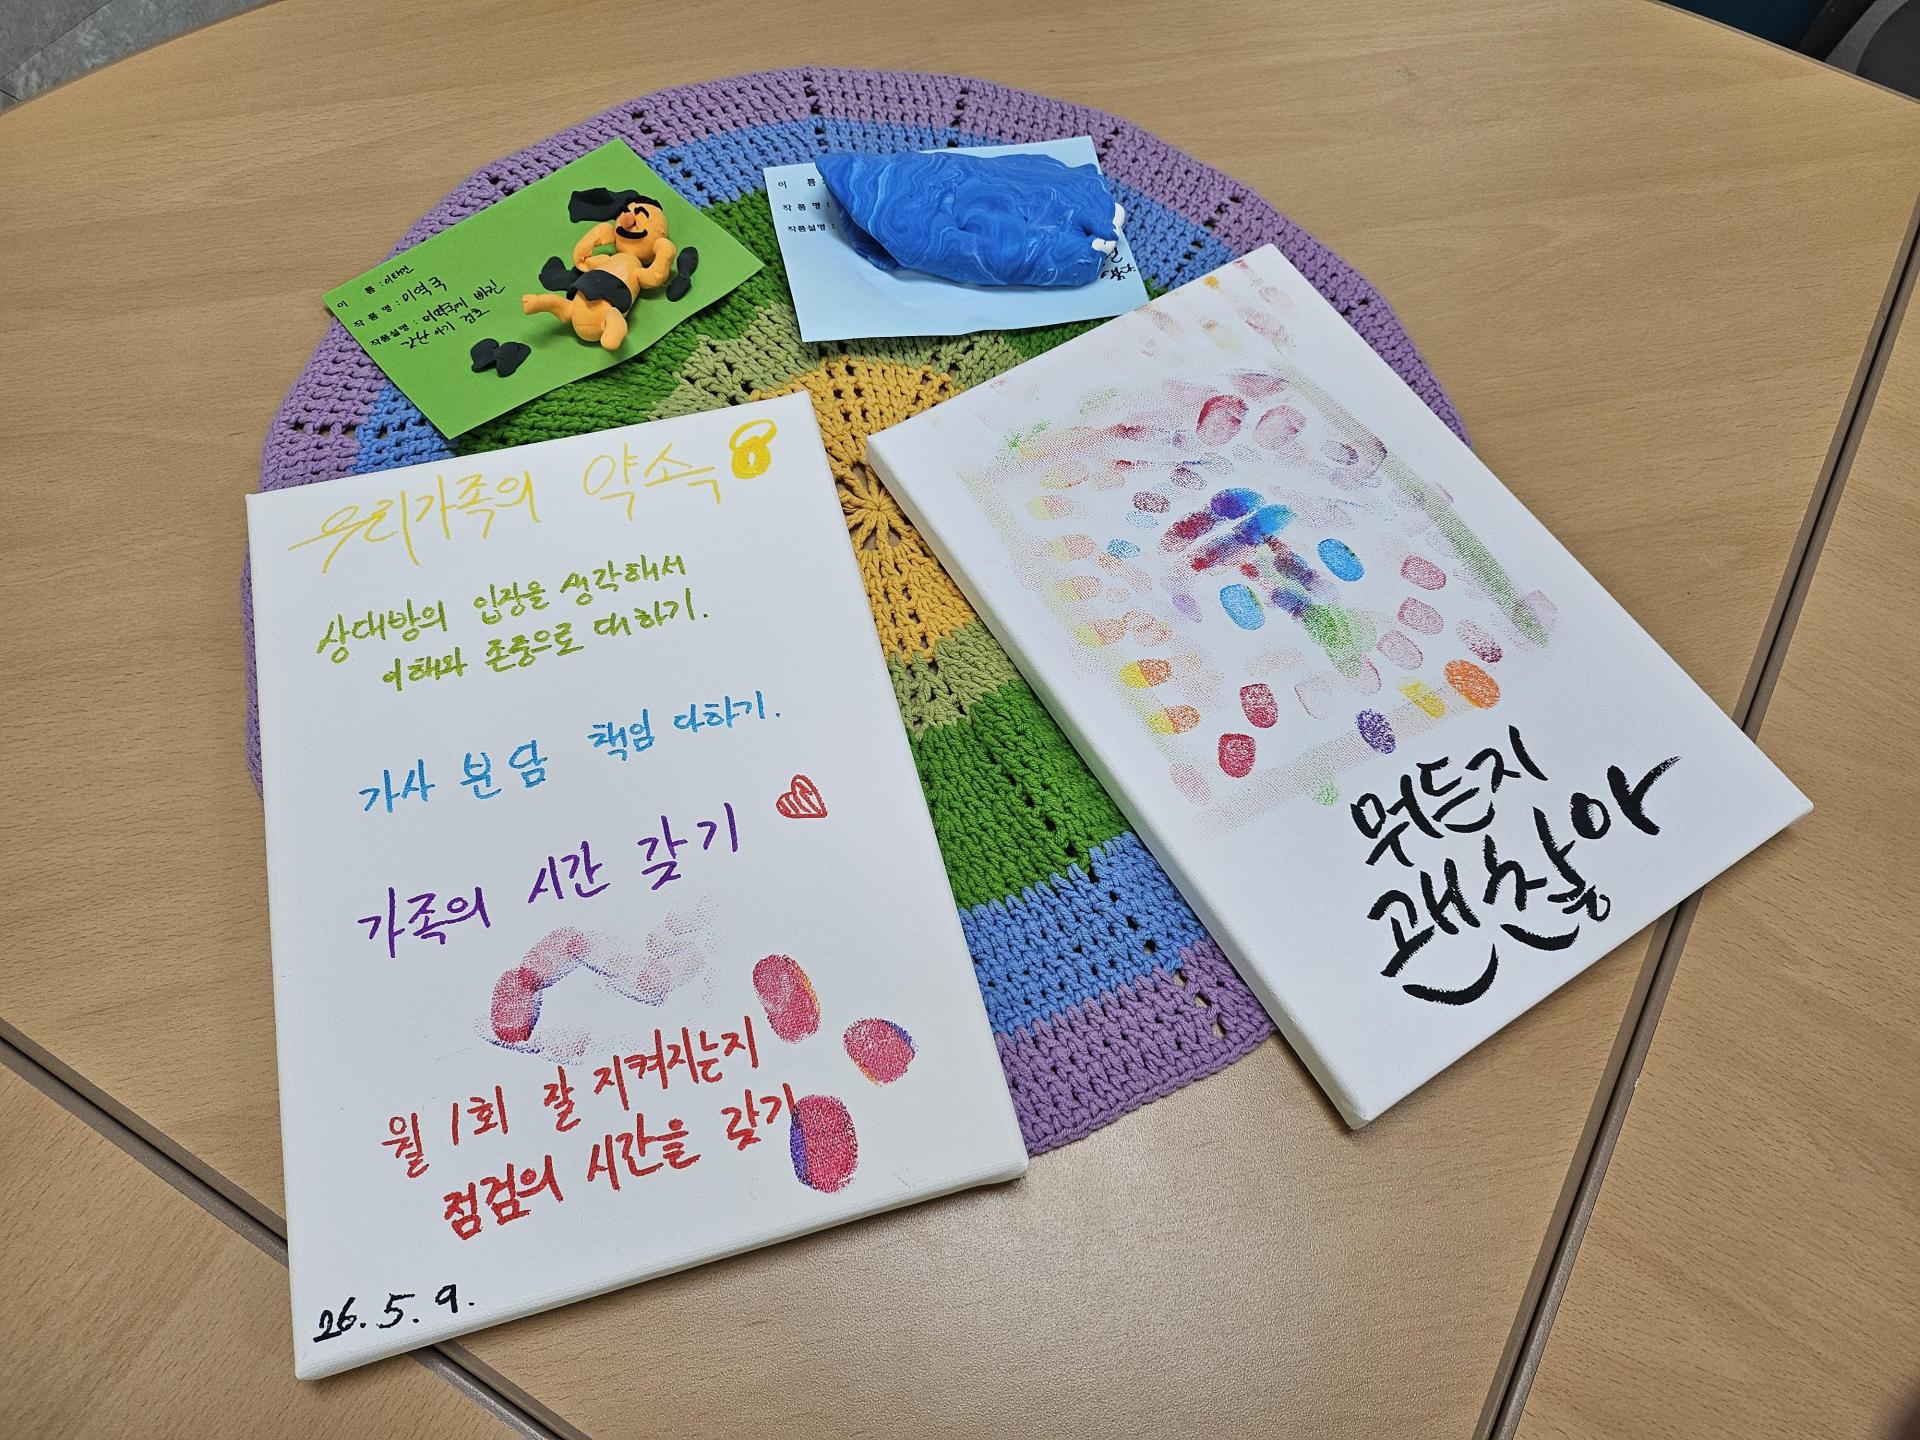 이 름 : 이태연
작 품 명 : 미역국
작품설명 : 미역국에 빠진
갓난 아기 검호
이 름 :
작 품 명 :
작품설명 :
우리가족의 약속
상대방의 입장을 생각해서
이해와 존중으로 대하기.
가사 분담 책임 다하기.
가족의 시간 갖기
월 1회 잘 지켜지는지
점검의 시간을 갖기
26. 5. 9.
뭐든지
괜찮아